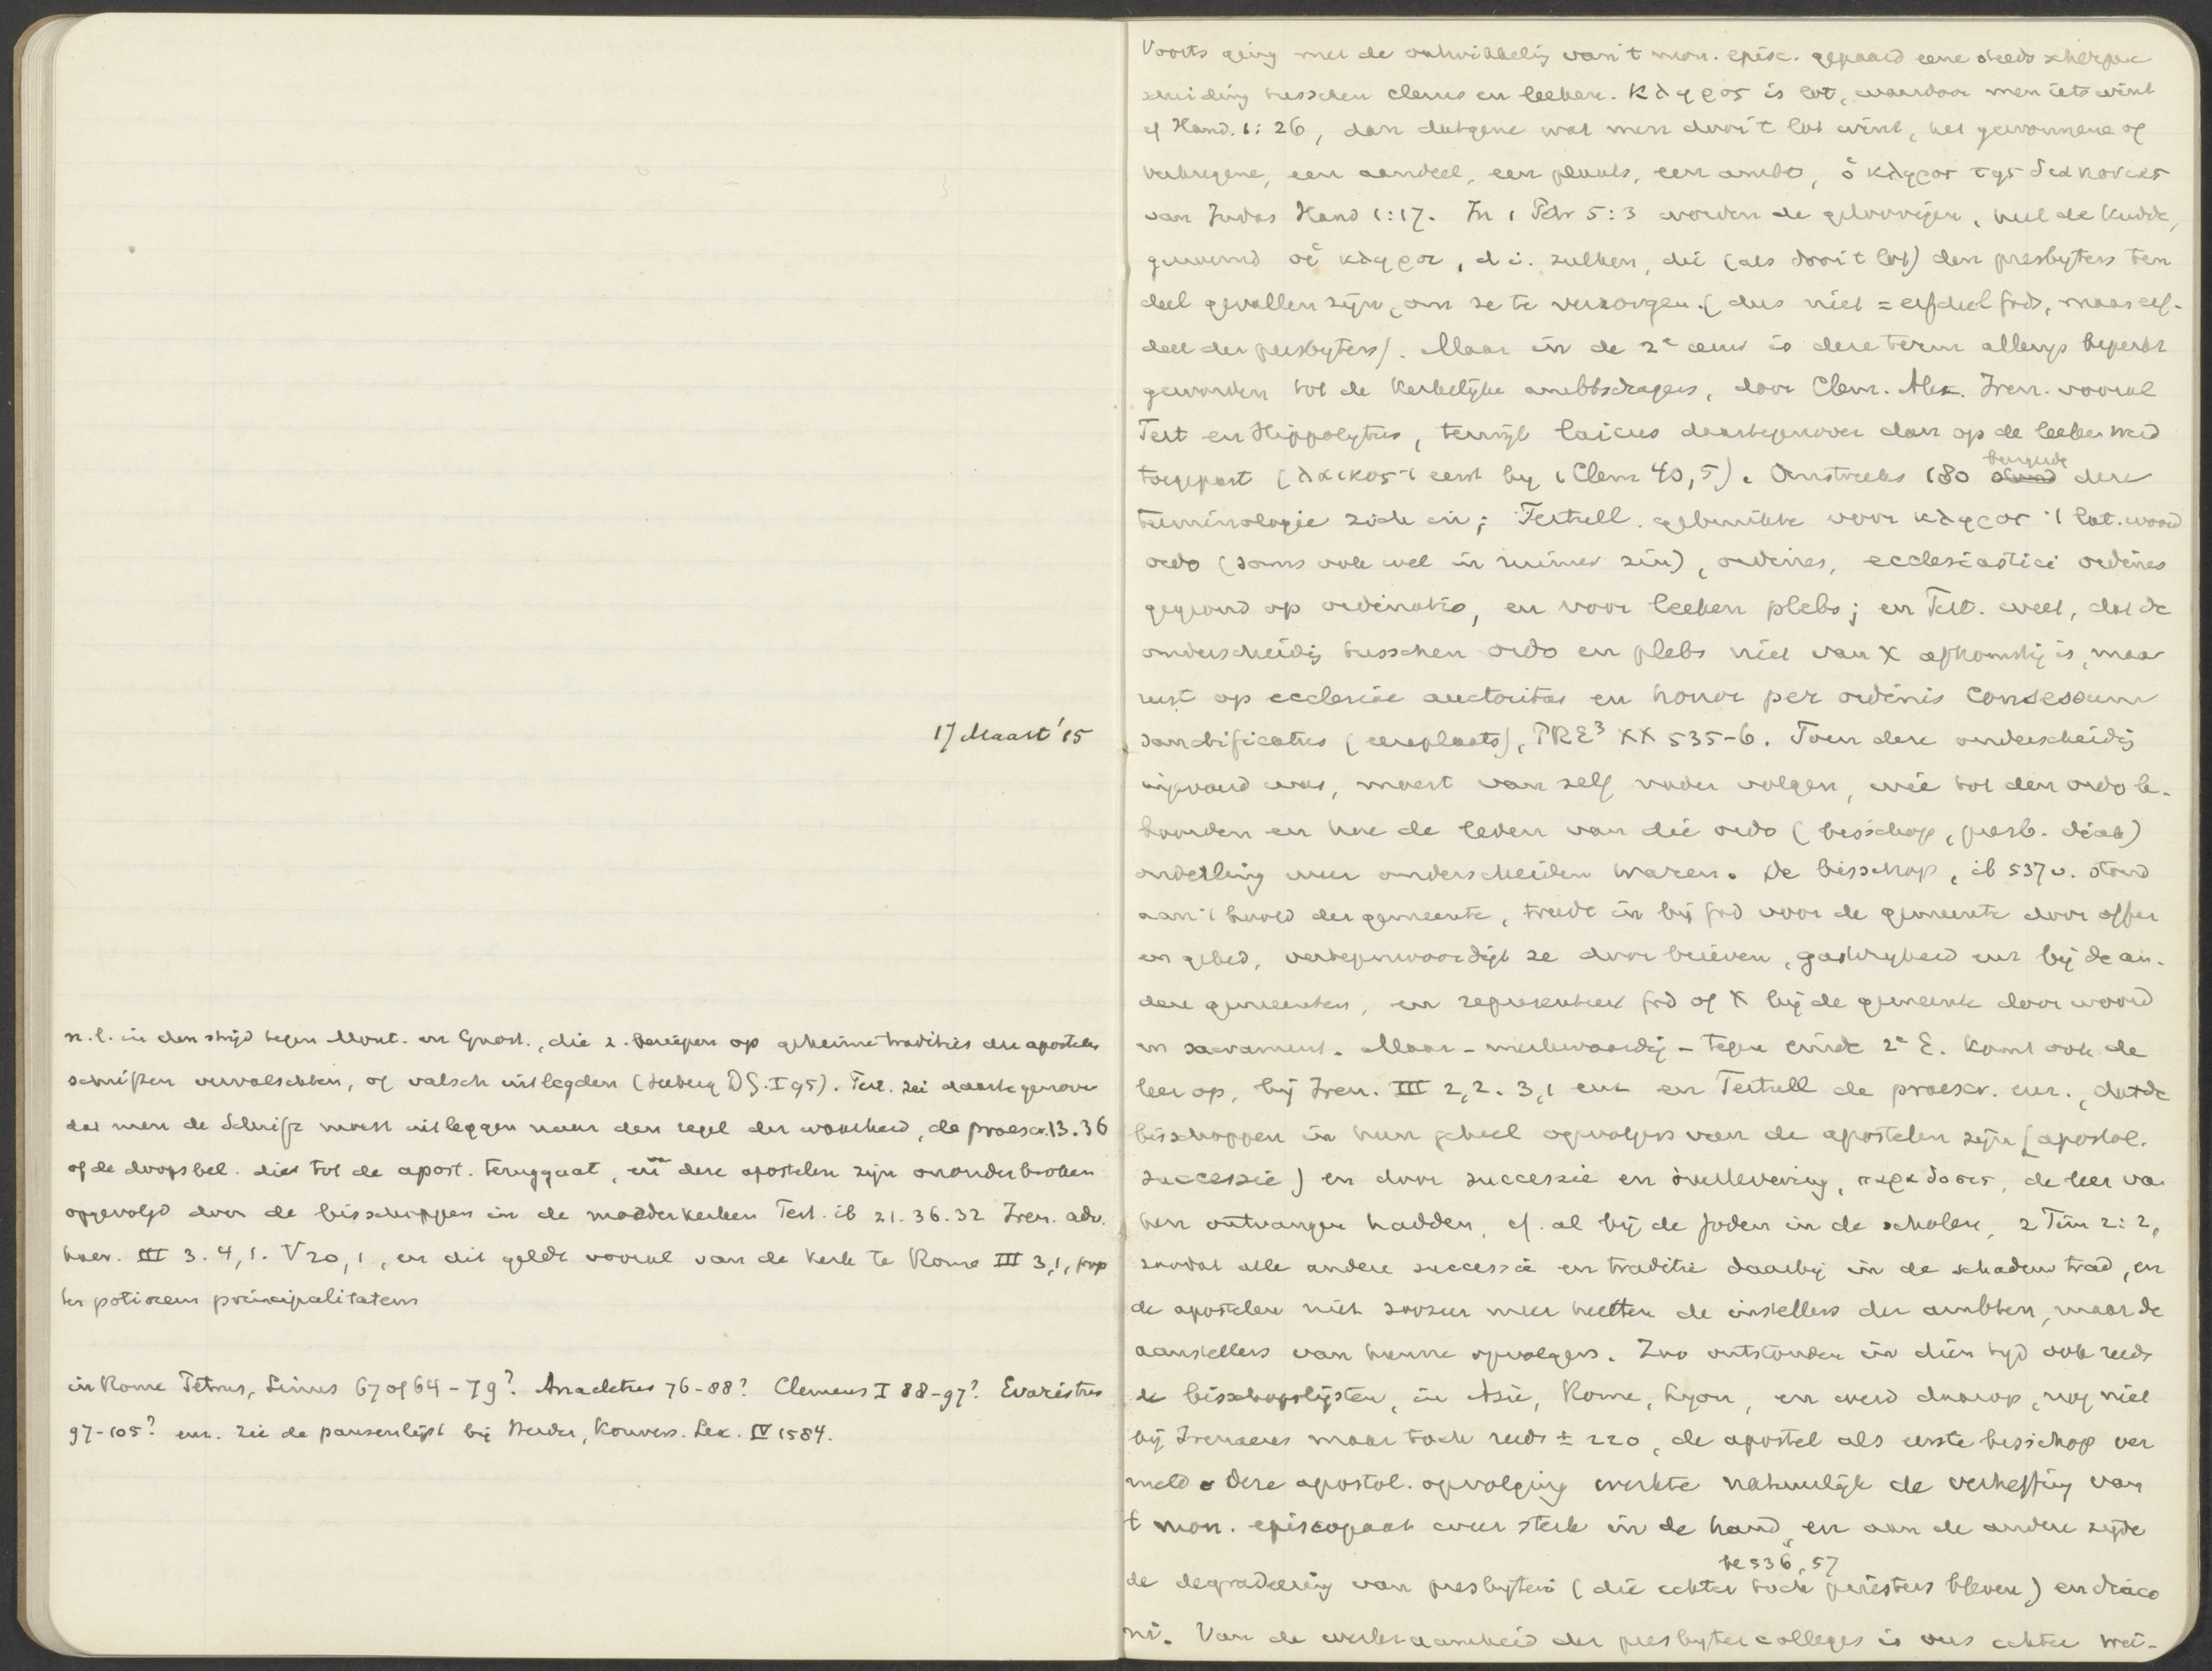 17 Maart '15
n.l. in den strijd tegen Mont. en Gnost., die z. beriepen op geheime tradities der apostelen
schriften vervalschten, of valsch uitlegden (Seeberg D.G. I 95). Tert. zei daartegenover
dat men de Schrift moest uitleggen naar den regel der waarheid, de praescr. 13. 36
of de doopsbel. die tot de apost. teruggaat, en deze apostelen zijn ononderbroken
opgevolgd door de bisschoppen in de moederkerken Tert. ib 21. 36. 32 Iren. adv.
haer. III 3. 4,1. V 20,1, en dit geldt vooral van de kerk te Rome III 3,1, prop
ter potiorem principalitatem
in Rome Petrus, Linus 67 of 64-79? Anacletus 76-88? Clemens I 88-97? Evaristus
97-105? enz. Zie de pausenlijst bij Herder, Konvers. Lex. IV 1584.
Voorts ging met de ontwikkeling van 't mon. episc. gepaard eene steeds scherpere
scheiding tusschen clerus en leeken. κληρος is lot, waardoor men iets wint
cf Hand. 1:26, dan datgene wat men door 't lot wint, het gewonnene of
verkregene, een aandeel, een plaats, een ambt, ὁ κληρος της διακονιας
van Judas Hand 1:17. In 1 Petr 5:3 worden de geloovigen, heel de kudde,
genoemd οἱ κληροι, d.i. zulken, die (als door 't lot) den presbyters ten
deel gevallen zijn, om ze te verzorgen (dus niet = erfdeel Gods, maar erf-
deel der presbyters). Maar in de 2e eeuw is deze term allengs beperkt
geworden tot de kerkelijke ambtsdragers, door Clem. Alex. Iren. vooral
Tert en Hippolytus, terwijl laicus daartegenover dan op de leeken werd
toegepast (λαικος 't eerst bij 1 Clem 40,5). Omstreeks 180 burgerde deze
terminologie zich in; Tertull. gebruikte voor κληρος 't lat. woord
ordo (soms ook wel in ruimer zin), ordines, ecclesiastici ordines
gegrond op ordinatio, en voor leeken plebs; en Tert. weet, dat de
onderscheidig tusschen ordo en plebs niet van X afkomstig is, maar
rust op ecclesiae auctoritas en honor per ordinis consessum
sanctificatus (eereplaats), PRE³ XX 535-6. Toen deze onderscheidig
ingevoerd was, moest van zelf nader volgen, wie tot den ordo be-
hoorden en hoe de leden van die ordo (bisschop, presb. diak)
onderling weer onderscheiden waren. De bisschop, ib 537 v. stond
aan 't hoofd der gemeente, treedt in bij God voor de gemeente door offer
en gebed, vertegenwoordigt ze door brieven, gastvrijheid enz bij de an-
dere gemeenten, en representeert God of X bij de gemeente door woord
en sacrament. Maar - merkwaardig - tegen einde 2e E. komt ook de
leer op, bij Iren. III 2,2. 3,1 enz en Tertull de praescr. enz., dat de
bisschoppen in hun geheel opvolgers van de apostelen zijn (apostol.
successie) en door successie en overlevering, παραδοσις, de leer van
hen ontvangen hadden, cf. al bij de Joden in de scholen, 2 Tim 2:2,
zoodat alle andere successie en traditie daarbij in de schaduw trad, en
de apostelen niet zoozeer meer heetten de instellers der ambten, maar de
aanstellers van hunne opvolgers. Zoo ontstonden in dien tijd ook reeds
de bisschopslijsten, in Azië, Rome, Lyon, en werd daarop, nog niet
bij Irenaeus maar toch reeds ± 220, de apostel als eerste bisschop ver
meld. Deze apostol. opvolging werkte natuurlijk de verheffing van
't mon. episcopaat weer sterk in de hand, en aan de andere zijde
536, 57
de degradeering van presbyteri (die echter toch priesters bleven) en diaco
ni. Van de werkzaamheid der presbytercolleges is ons echter wei-